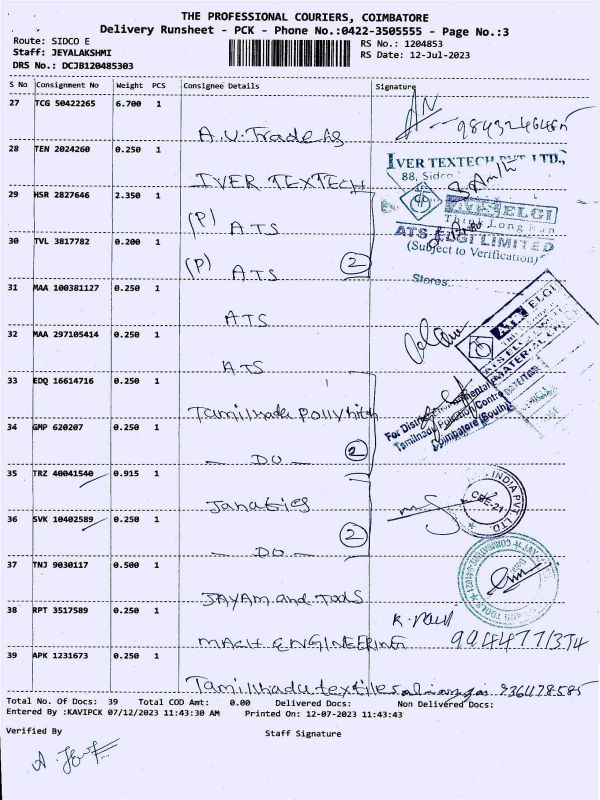 THE PROFESSIONAL COURIERS, COIMBATORE
Delivery Runsheet - PCK - Phone No.:0422-3505555 - Page No.:3
Route: SIDCO E
RS No.: 1204853
Staff: JEYALAKSHMI
RS Date: 12-Jul-2023
DRS No.: DCJB120485303
S No Consignment No Weight PCS Consignee Details Signature
27 TCG 50422265 6.700 1
A.V. Traders
28 TEN 2024260 0.250 1
IVER TEXTECH PVT LTD.,
88, Sidco
IVER TEXTECH
29 HSR 2827646 2.350 1
(P) ATS
ATS ELGI
30 TVL 3817782 0.200 1
ATS ELGI LIMITED
(Subject to Verification)
(P) ATS 2
Stores
31 MAA 100381127 0.250 1
ATS
ATS ELGI
32 MAA 297105414 0.250 1
ATS
33 EDQ 16614716 0.250 1
Tamilnadu
34 GMP 620207 0.250 1
Coimbatore (South)
DO 2
35 TRZ 40041540 0.915 1
INDIA PVT. LTD.
CBE-21
Janatics
36 SVK 10402589 0.250 1
DO 2
37 TNJ 9030117 0.500 1
JAYAM and Tools
38 RPT 3517589 0.250 1
MACH ENGINEERING
39 APK 1231673 0.250 1
Tamilnadu textiles
Total No. Of Docs: 39 Total COD Amt: 0.00 Delivered Docs: Non Delivered Docs:
Entered By :KAVIPCK 07/12/2023 11:43:30 AM Printed On: 12-07-2023 11:43:43
Verified By
Staff Signature